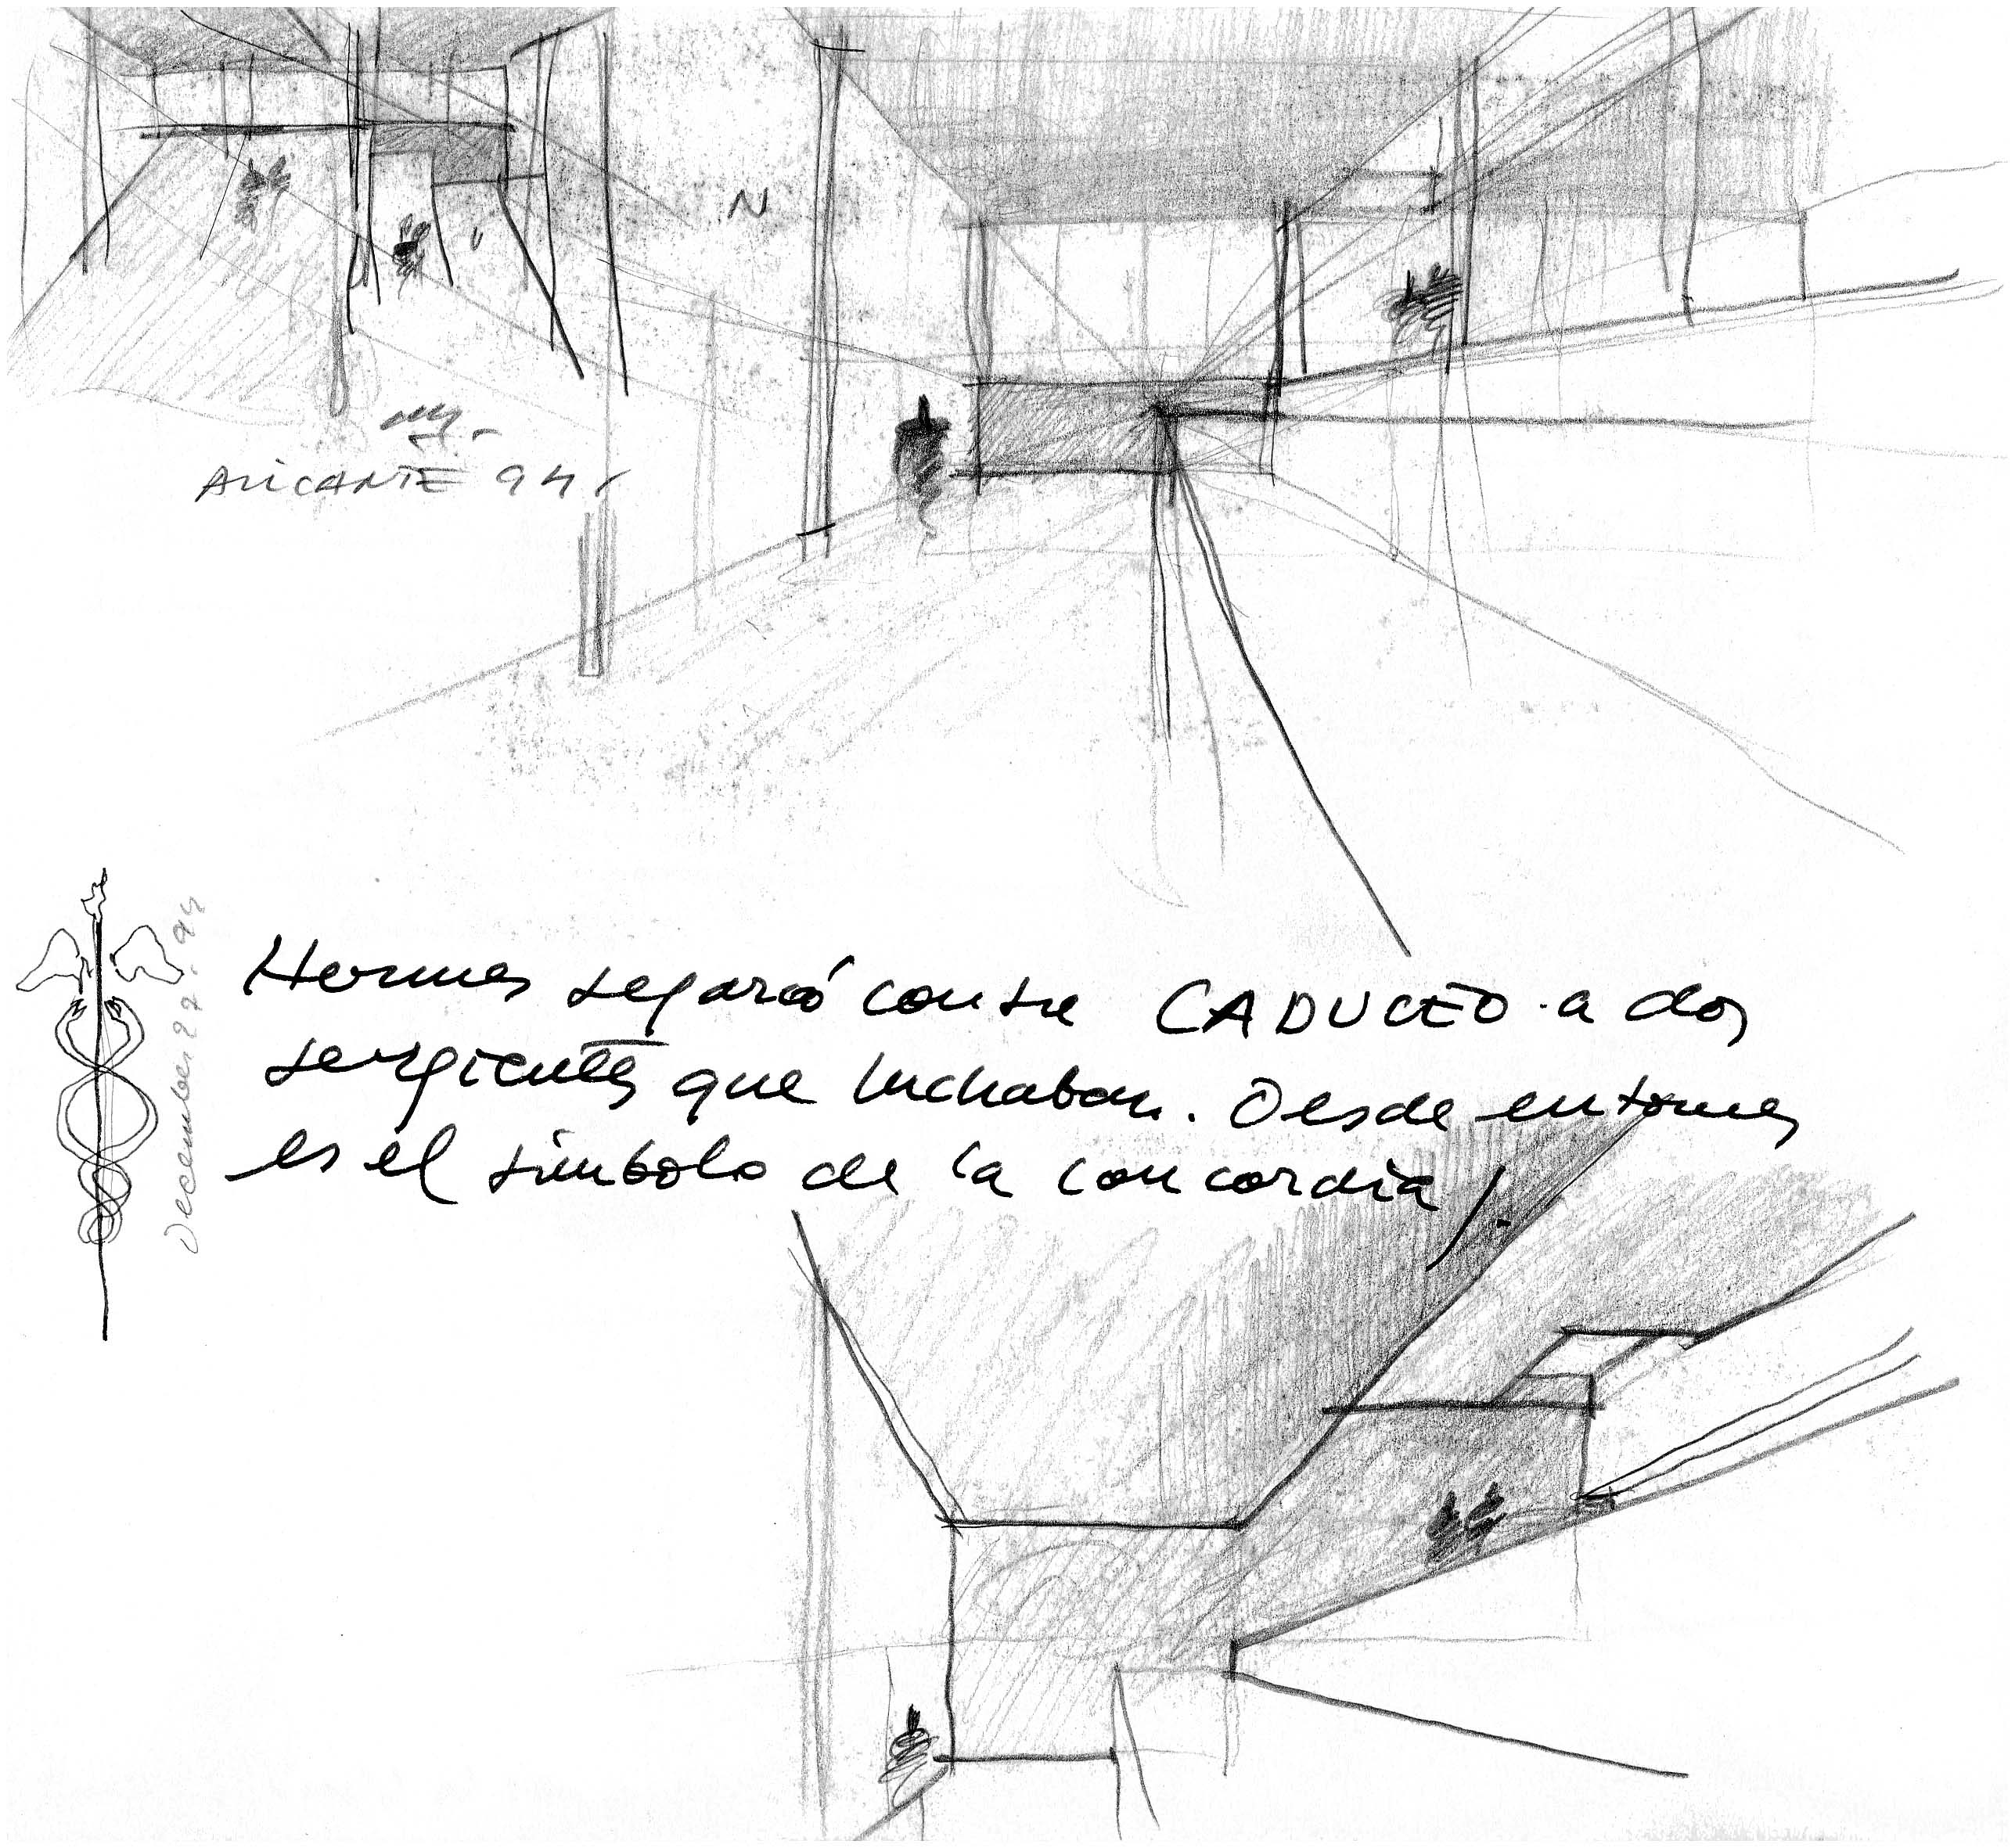 N
ALICANTE 94
December 27. 94
Hermes separó con su CADUCEO a dos
serpientes que luchaban. Desde entonces
es el símbolo de la concordia!